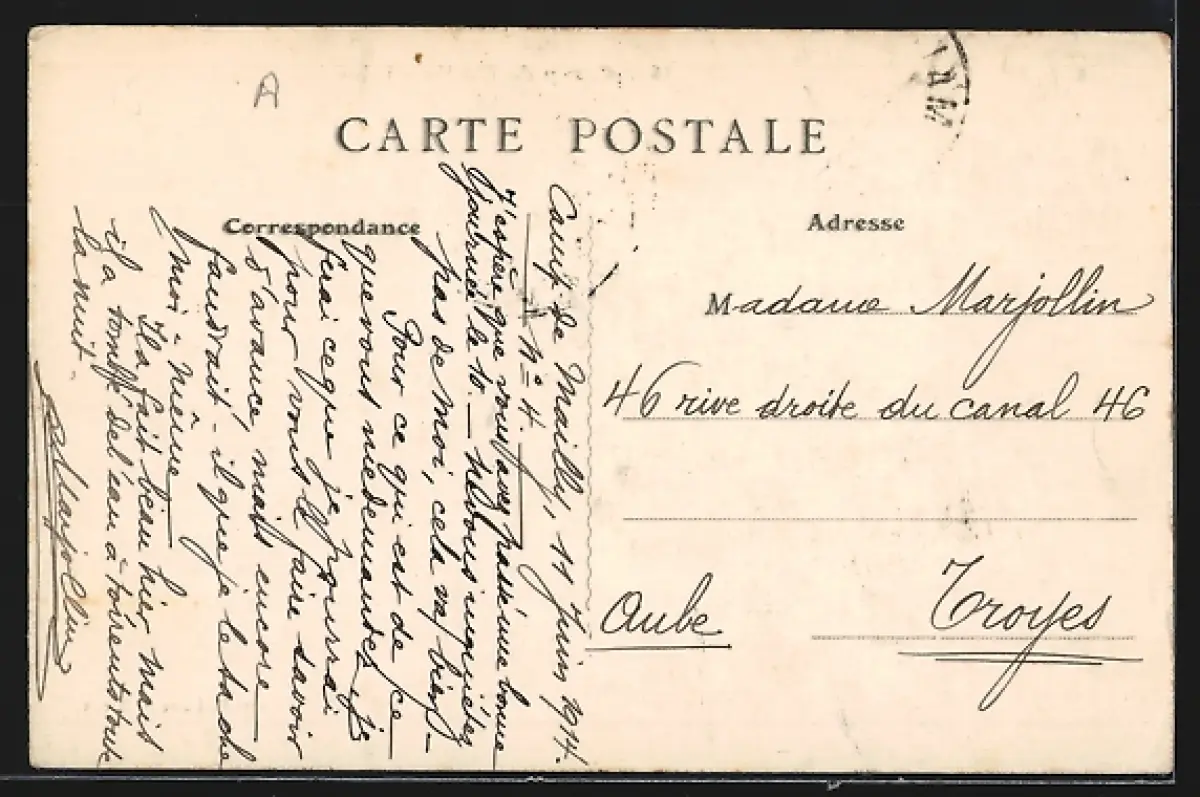 A
CARTE POSTALE
Correspondance
Adresse
Camp de Mailly, 11 Juin 1914.
N° 4
J'espère que vous avez passé une bonne
journée le 10 — ne vous inquiétez
pas de moi, cela va bien —
Pour ce qui est de ce
que vous me demandez, je
ferai ce que je pourrai
pour vous le faire savoir
d'avance, mais encore
faudrait-il que je le sache
moi-même
Il a fait beau hier mais
il a tombé de l'eau à torrents toute
la nuit.
Marjollin
Madame Marjollin
46 rive droite du canal 46
Troyes
Aube